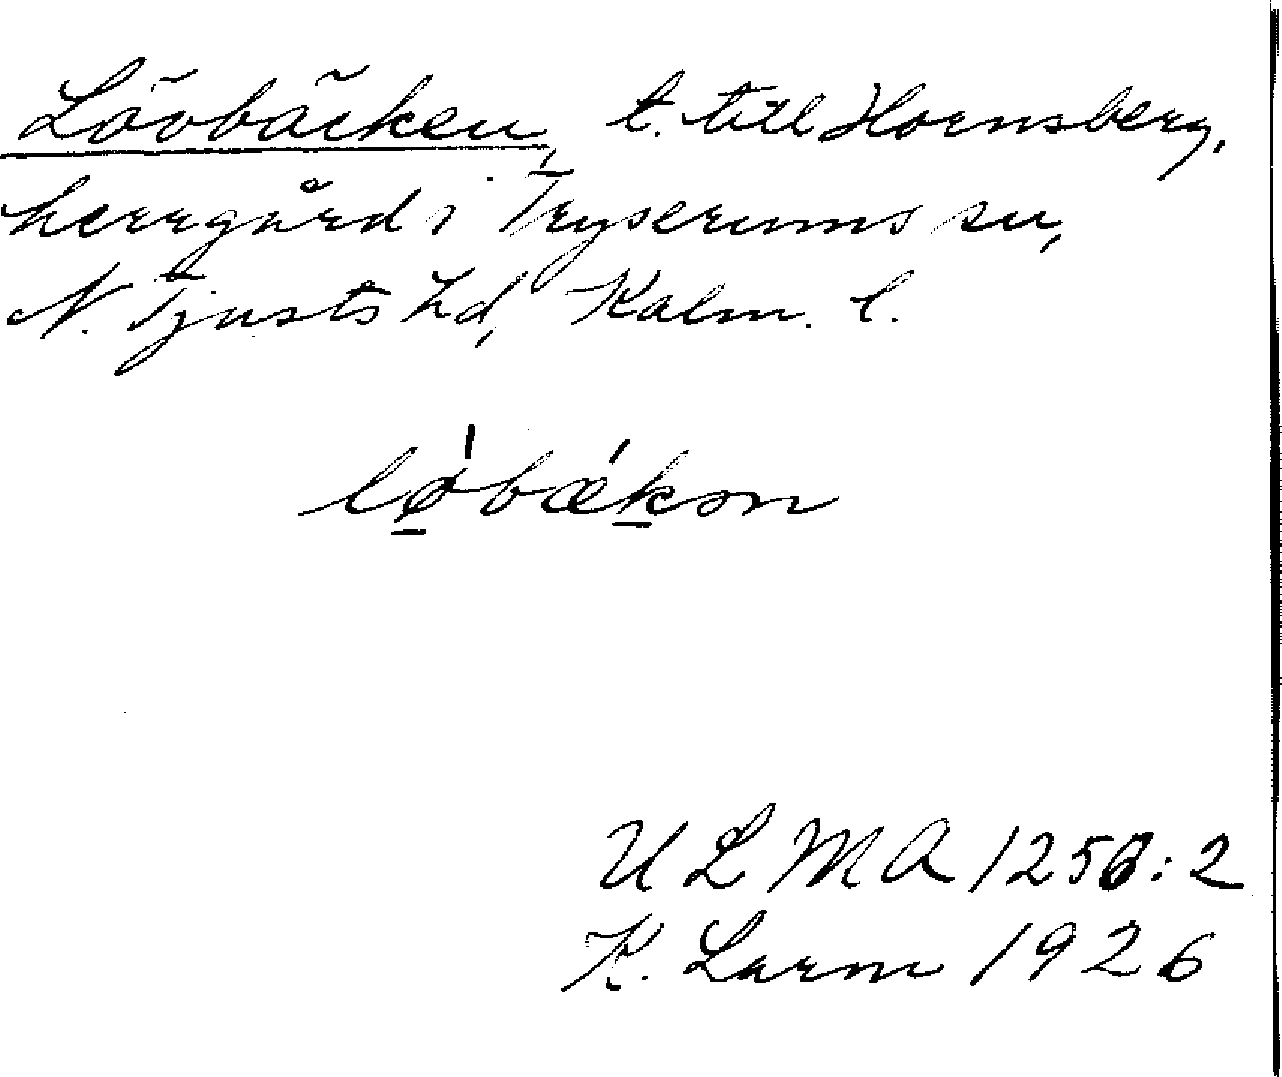 Lövbäcken, t. till Hornsberg,
herrgård i Tryserums sn,
N. Tjusts hd, Kalm. l.
lø̱̍bǽḵən
ULMA 1256:2
K. Larm 1926